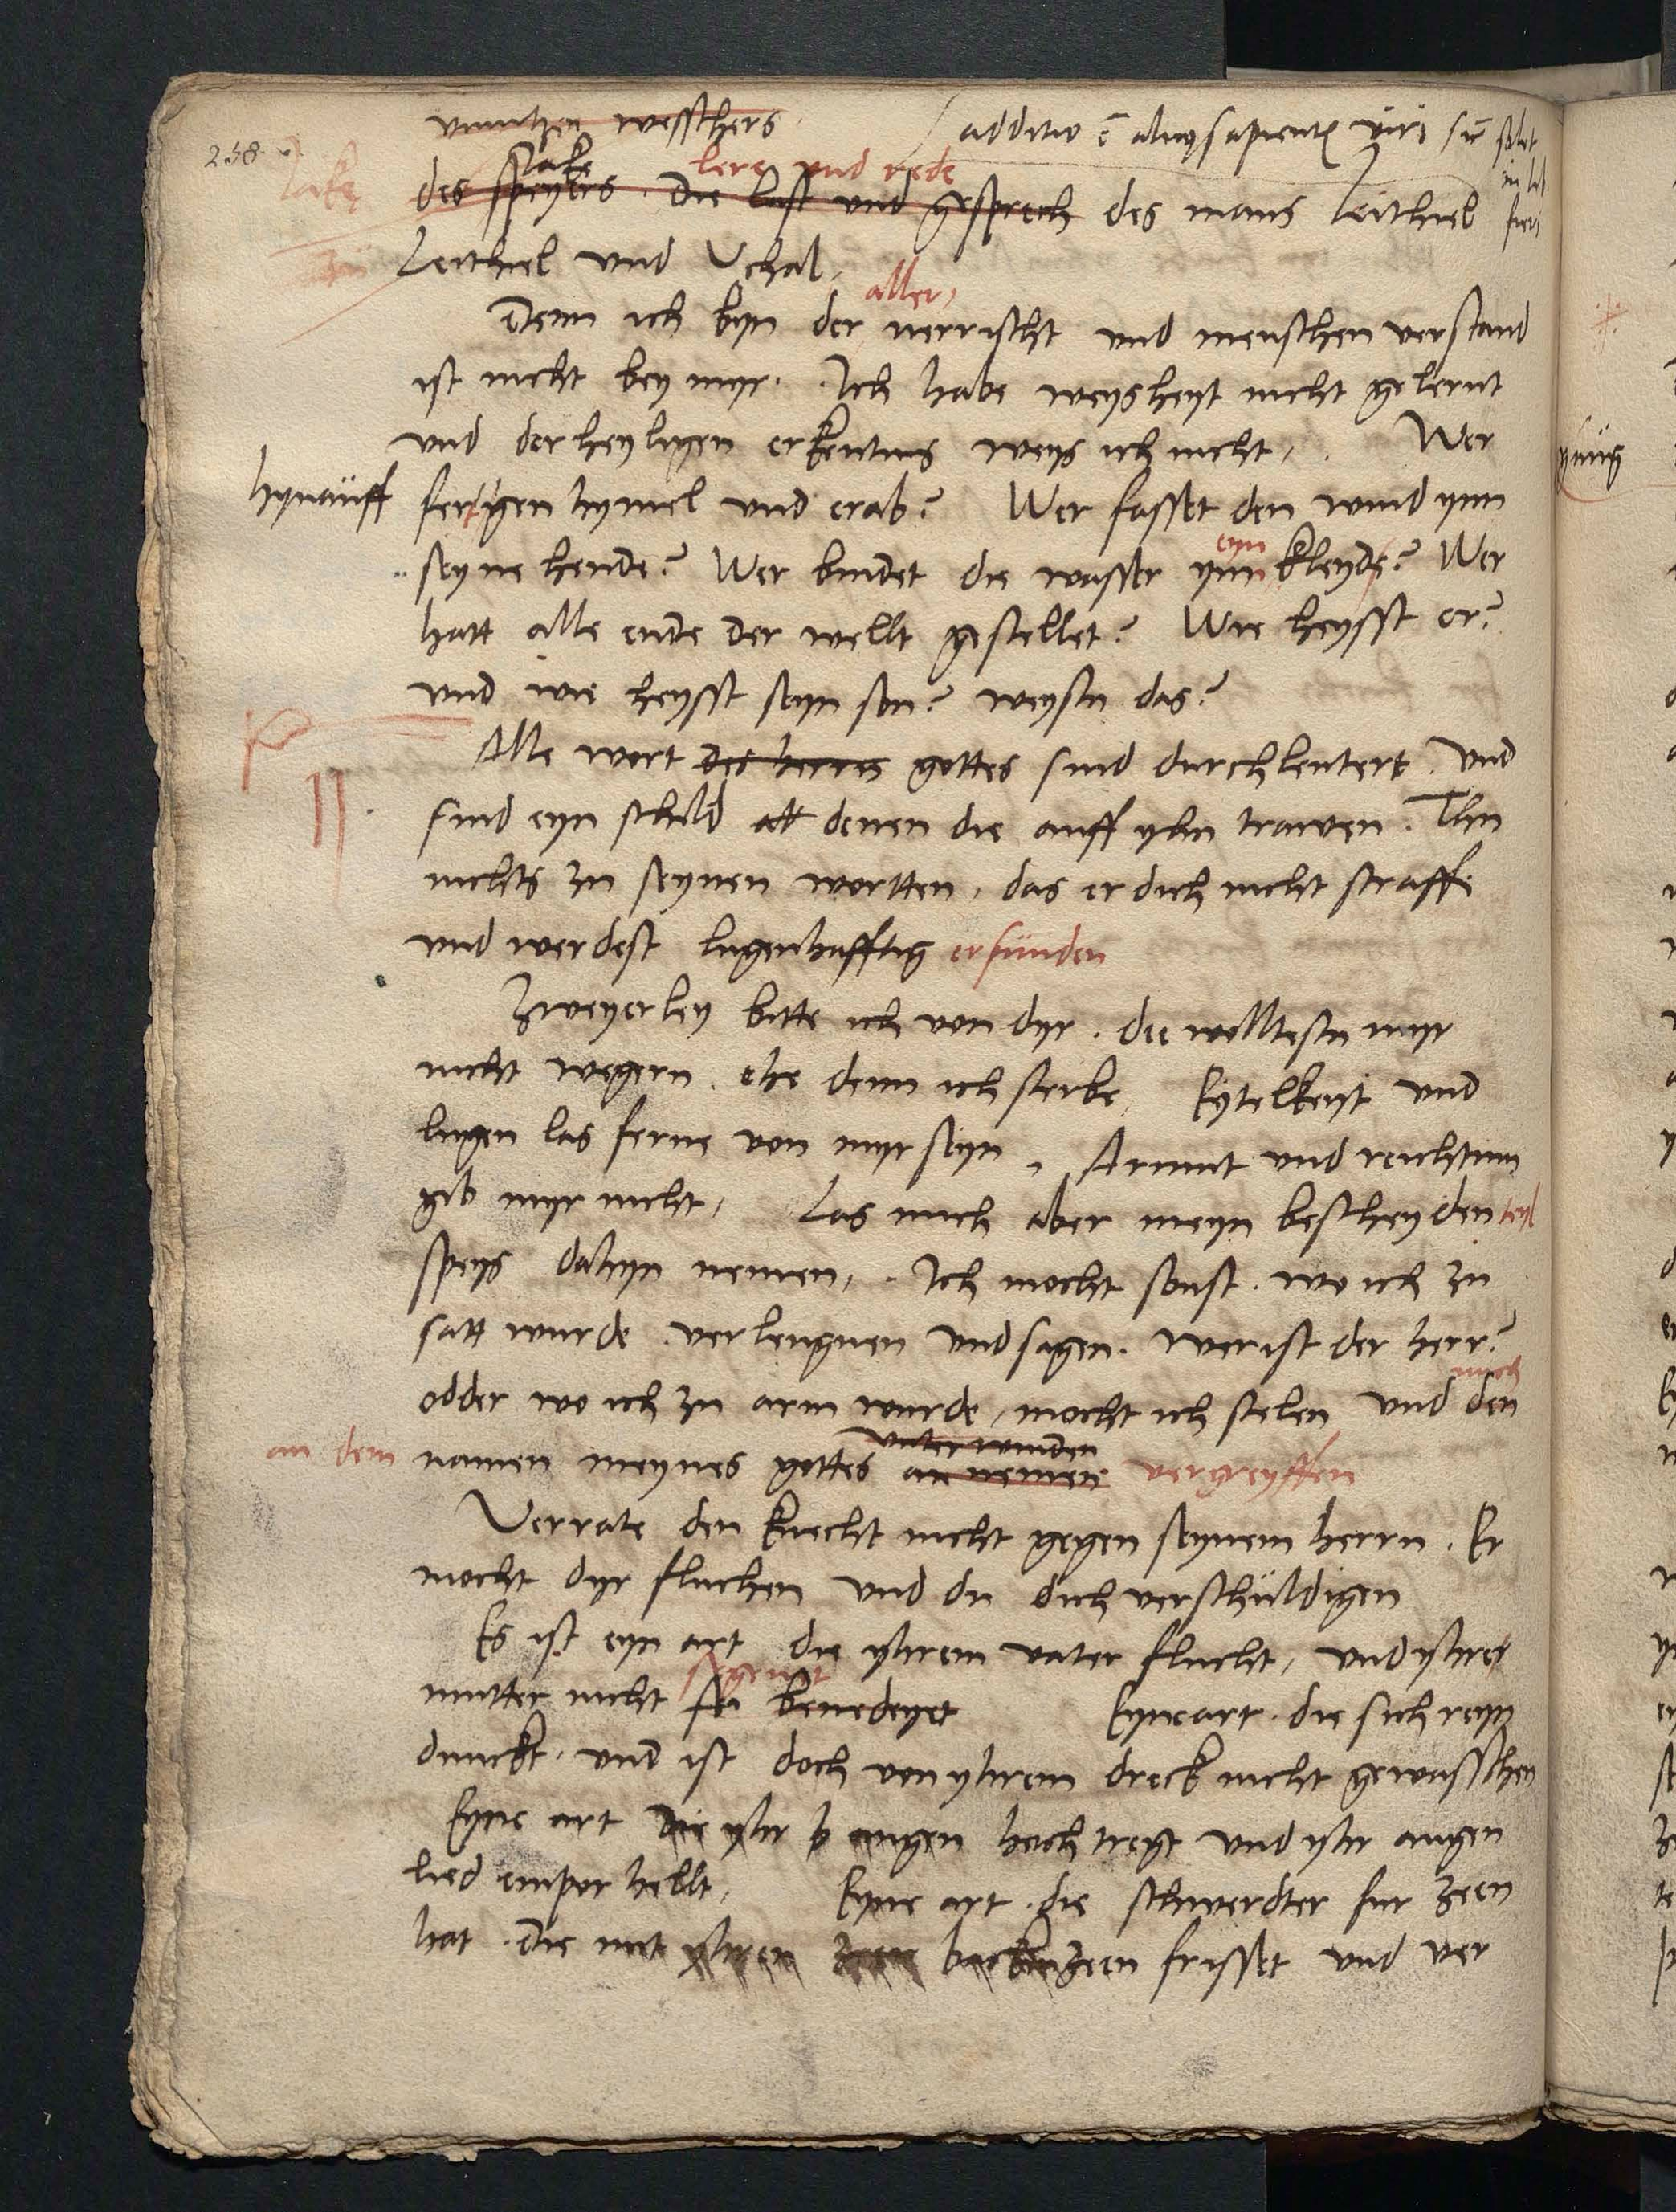 258
vnnutzen wesschers
additio ē alicuius sapientis viri
Jake
lere vnd rede
des speyers. Die last vnd gesprech des mans Leithiel
Leithiel vnd Vchal,
aller
Denn ich byn der nerrischt vnd menschen verstand
ist nicht bey myr. Ich habe weysheyt nicht gelernt
vnd der heyligen erkentnis weys ich nicht, Wer
hynauff feret gen hymel vnd erab? Wer fasset den wind ynn
eyn
seyne hende? Wer bindet die wasser ynn kleyde? Wer
hatt alle ende der wellt gestellet? Wie heysst er?
vnd wie heysst seyn son? weystu das?
Alle wort des herrn gottes sind durchleutert. vnd
sind eyn schild denen die auff yhn trawen. Thu
nichts zu seynen wortten, das er dich nicht straffe
vnd werdest lugenhafftig erfunden
Zweyerley bitte ich von dyr. die wolltestu myr
nicht wegern. ehe denn ich sterbe, Eytelkeyt vnd
lugen las ferne von myr seyn, Armut vnd reichtum
gib myr nicht, Las mich aber meyn bescheyden teyl
speys dahyn nemen, Ich mocht sonst. wo ich zu
satt wurde. verleugnen vnd sagen. wer ist der herr?
mich
odder wo ich zu arm wurde, mocht ich stelen vnd den
vnterwinden
an dem namen meynes gottes an nemen vergreyffen
Verrate den knecht nicht gegen seynem herrn. Er
mocht dyr fluchen vnd du dich verschuldigen
Es ist eyn art die yhrem vater flucht, vnd yhrer
segenet
mutter nicht benedeyet Eyne art. die sich reyn
dunckt. vnd ist doch von yhrem dreck nicht gewasschen
Eyne art die yhr augen hoch tregt vnd yhr augen
lied empor hellt, Eyne art. die schwerdter fur zeen
hat. die mit yhren zeen backenzeen frisset vnd ver